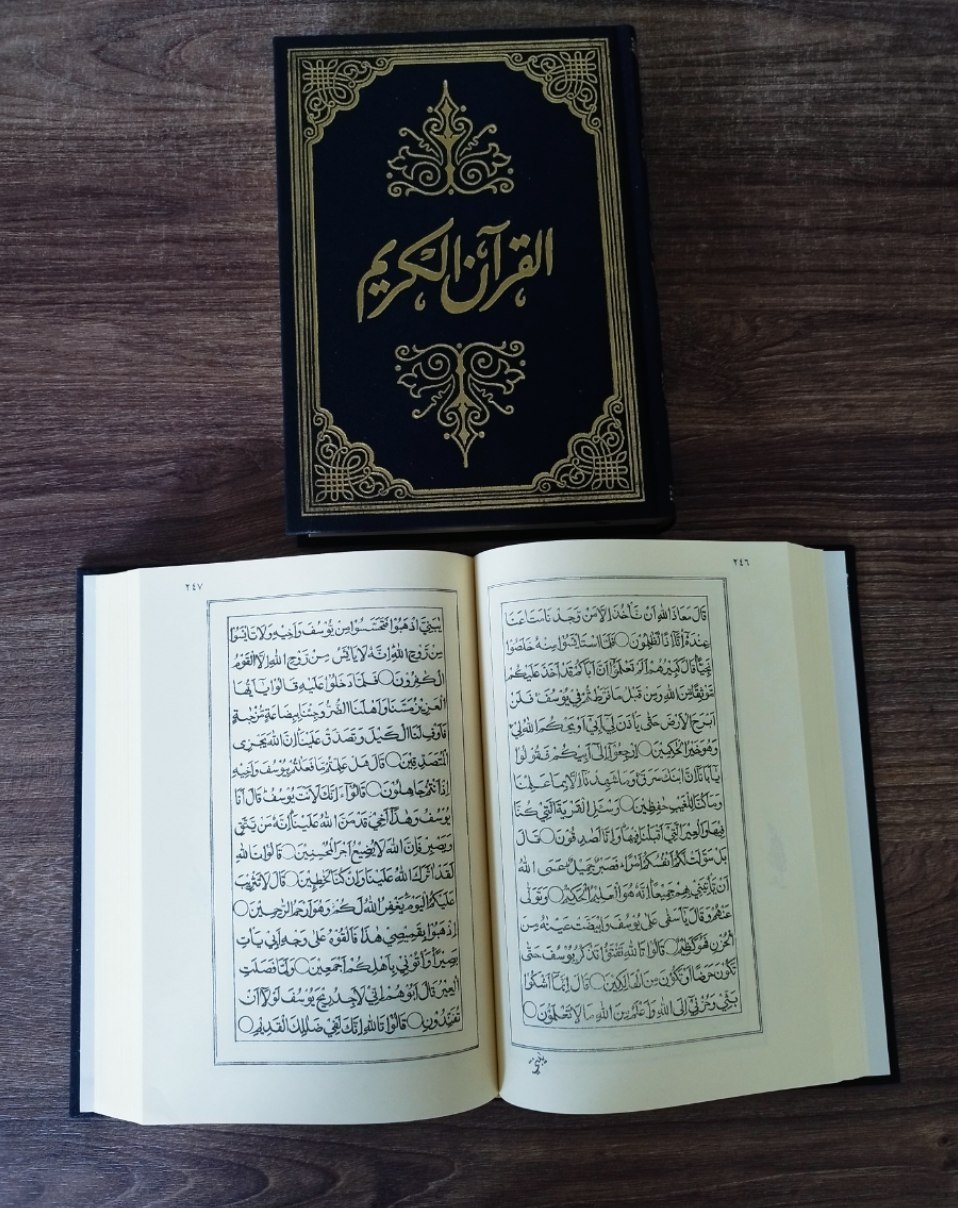 القرآن الكريم
٢٤٦
قَالَ مَعَاذَ اللهِ اَنْ نَأْخُذَ اِلَّا مَنْ وَجَدْنَا مَتَاعَنَا
عِنْدَهُ اِنَّا اِذًا لَظٰلِمُونَ ○ فَلَمَّا اسْتَيْـَٔسُوا مِنْهُ خَلَصُوا
نَجِيًّا قَالَ كَبِيرُهُمْ اَلَمْ تَعْلَمُوا اَنَّ اَبَاكُمْ قَدْ اَخَذَ عَلَيْكُمْ
مَوْثِقًا مِنَ اللهِ وَمِنْ قَبْلُ مَا فَرَّطْتُمْ فِي يُوسُفَ فَلَنْ
اَبْرَحَ الْاَرْضَ حَتّٰى يَأْذَنَ لِي اَبِي اَوْ يَحْكُمَ اللهُ لِي
وَهُوَ خَيْرُ الْحٰكِمِينَ ○ اِرْجِعُوا اِلٰى اَبِيكُمْ فَقُولُوا
يَا اَبَانَا اِنَّ ابْنَكَ سَرَقَ وَمَا شَهِدْنَا اِلَّا بِمَا عَلِمْنَا
وَمَا كُنَّا لِلْغَيْبِ حٰفِظِينَ ○ وَسْـَٔلِ الْقَرْيَةَ الَّتِي كُنَّا
فِيهَا وَالْعِيرَ الَّتِي اَقْبَلْنَا فِيهَا وَاِنَّا لَصٰدِقُونَ ○ قَالَ
بَلْ سَوَّلَتْ لَكُمْ اَنْفُسُكُمْ اَمْرًا فَصَبْرٌ جَمِيلٌ عَسَى اللهُ
اَنْ يَأْتِيَنِي بِهِمْ جَمِيعًا اِنَّهُ هُوَ الْعَلِيمُ الْحَكِيمُ ○ وَتَوَلّٰى
عَنْهُمْ وَقَالَ يَا اَسَفٰى عَلٰى يُوسُفَ وَابْيَضَّتْ عَيْنٰهُ مِنَ
الْحُزْنِ فَهُوَ كَظِيمٌ ○ قَالُوا تَاللهِ تَفْتَؤُا تَذْكُرُ يُوسُفَ حَتّٰى
تَكُونَ حَرَضًا اَوْ تَكُونَ مِنَ الْهَالِكِينَ ○ قَالَ اِنَّمَا اَشْكُوا
بَثِّي وَحُزْنِي اِلَى اللهِ وَاَعْلَمُ مِنَ اللهِ مَا لَا تَعْلَمُونَ ○
يٰبَنِيَّ
٢٤٧
يٰبَنِيَّ اذْهَبُوا فَتَحَسَّسُوا مِنْ يُوسُفَ وَاَخِيهِ وَلَا تَايْـَٔسُوا
مِنْ رَوْحِ اللهِ اِنَّهُ لَا يَايْـَٔسُ مِنْ رَوْحِ اللهِ اِلَّا الْقَوْمُ
الْكٰفِرُونَ ○ فَلَمَّا دَخَلُوا عَلَيْهِ قَالُوا يَا اَيُّهَا
الْعَزِيزُ مَسَّنَا وَاَهْلَنَا الضُّرُّ وَجِئْنَا بِبِضَاعَةٍ مُزْجٰيةٍ
فَاَوْفِ لَنَا الْكَيْلَ وَتَصَدَّقْ عَلَيْنَا اِنَّ اللهَ يَجْزِي
الْمُتَصَدِّقِينَ ○ قَالَ هَلْ عَلِمْتُمْ مَا فَعَلْتُمْ بِيُوسُفَ وَاَخِيهِ
اِذْ اَنْتُمْ جَاهِلُونَ ○ قَالُوا ءَاِنَّكَ لَاَنْتَ يُوسُفُ قَالَ اَنَا
يُوسُفُ وَهٰذَا اَخِي قَدْ مَنَّ اللهُ عَلَيْنَا اِنَّهُ مَنْ يَتَّقِ
وَيَصْبِرْ فَاِنَّ اللهَ لَا يُضِيعُ اَجْرَ الْمُحْسِنِينَ ○ قَالُوا تَاللهِ
لَقَدْ اٰثَرَكَ اللهُ عَلَيْنَا وَاِنْ كُنَّا لَخٰطِـِٕينَ ○ قَالَ لَا تَثْرِيبَ
عَلَيْكُمُ الْيَوْمَ يَغْفِرُ اللهُ لَكُمْ وَهُوَ اَرْحَمُ الرّٰحِمِينَ ○
اِذْهَبُوا بِقَمِيصِي هٰذَا فَاَلْقُوهُ عَلٰى وَجْهِ اَبِي يَأْتِ
بَصِيرًا وَأْتُونِي بِاَهْلِكُمْ اَجْمَعِينَ ○ وَلَمَّا فَصَلَتِ
الْعِيرُ قَالَ اَبُوهُمْ اِنِّي لَاَجِدُ رِيحَ يُوسُفَ لَوْلَا اَنْ
تُفَنِّدُونِ ○ قَالُوا تَاللهِ اِنَّكَ لَفِي ضَلٰلِكَ الْقَدِيمِ ○